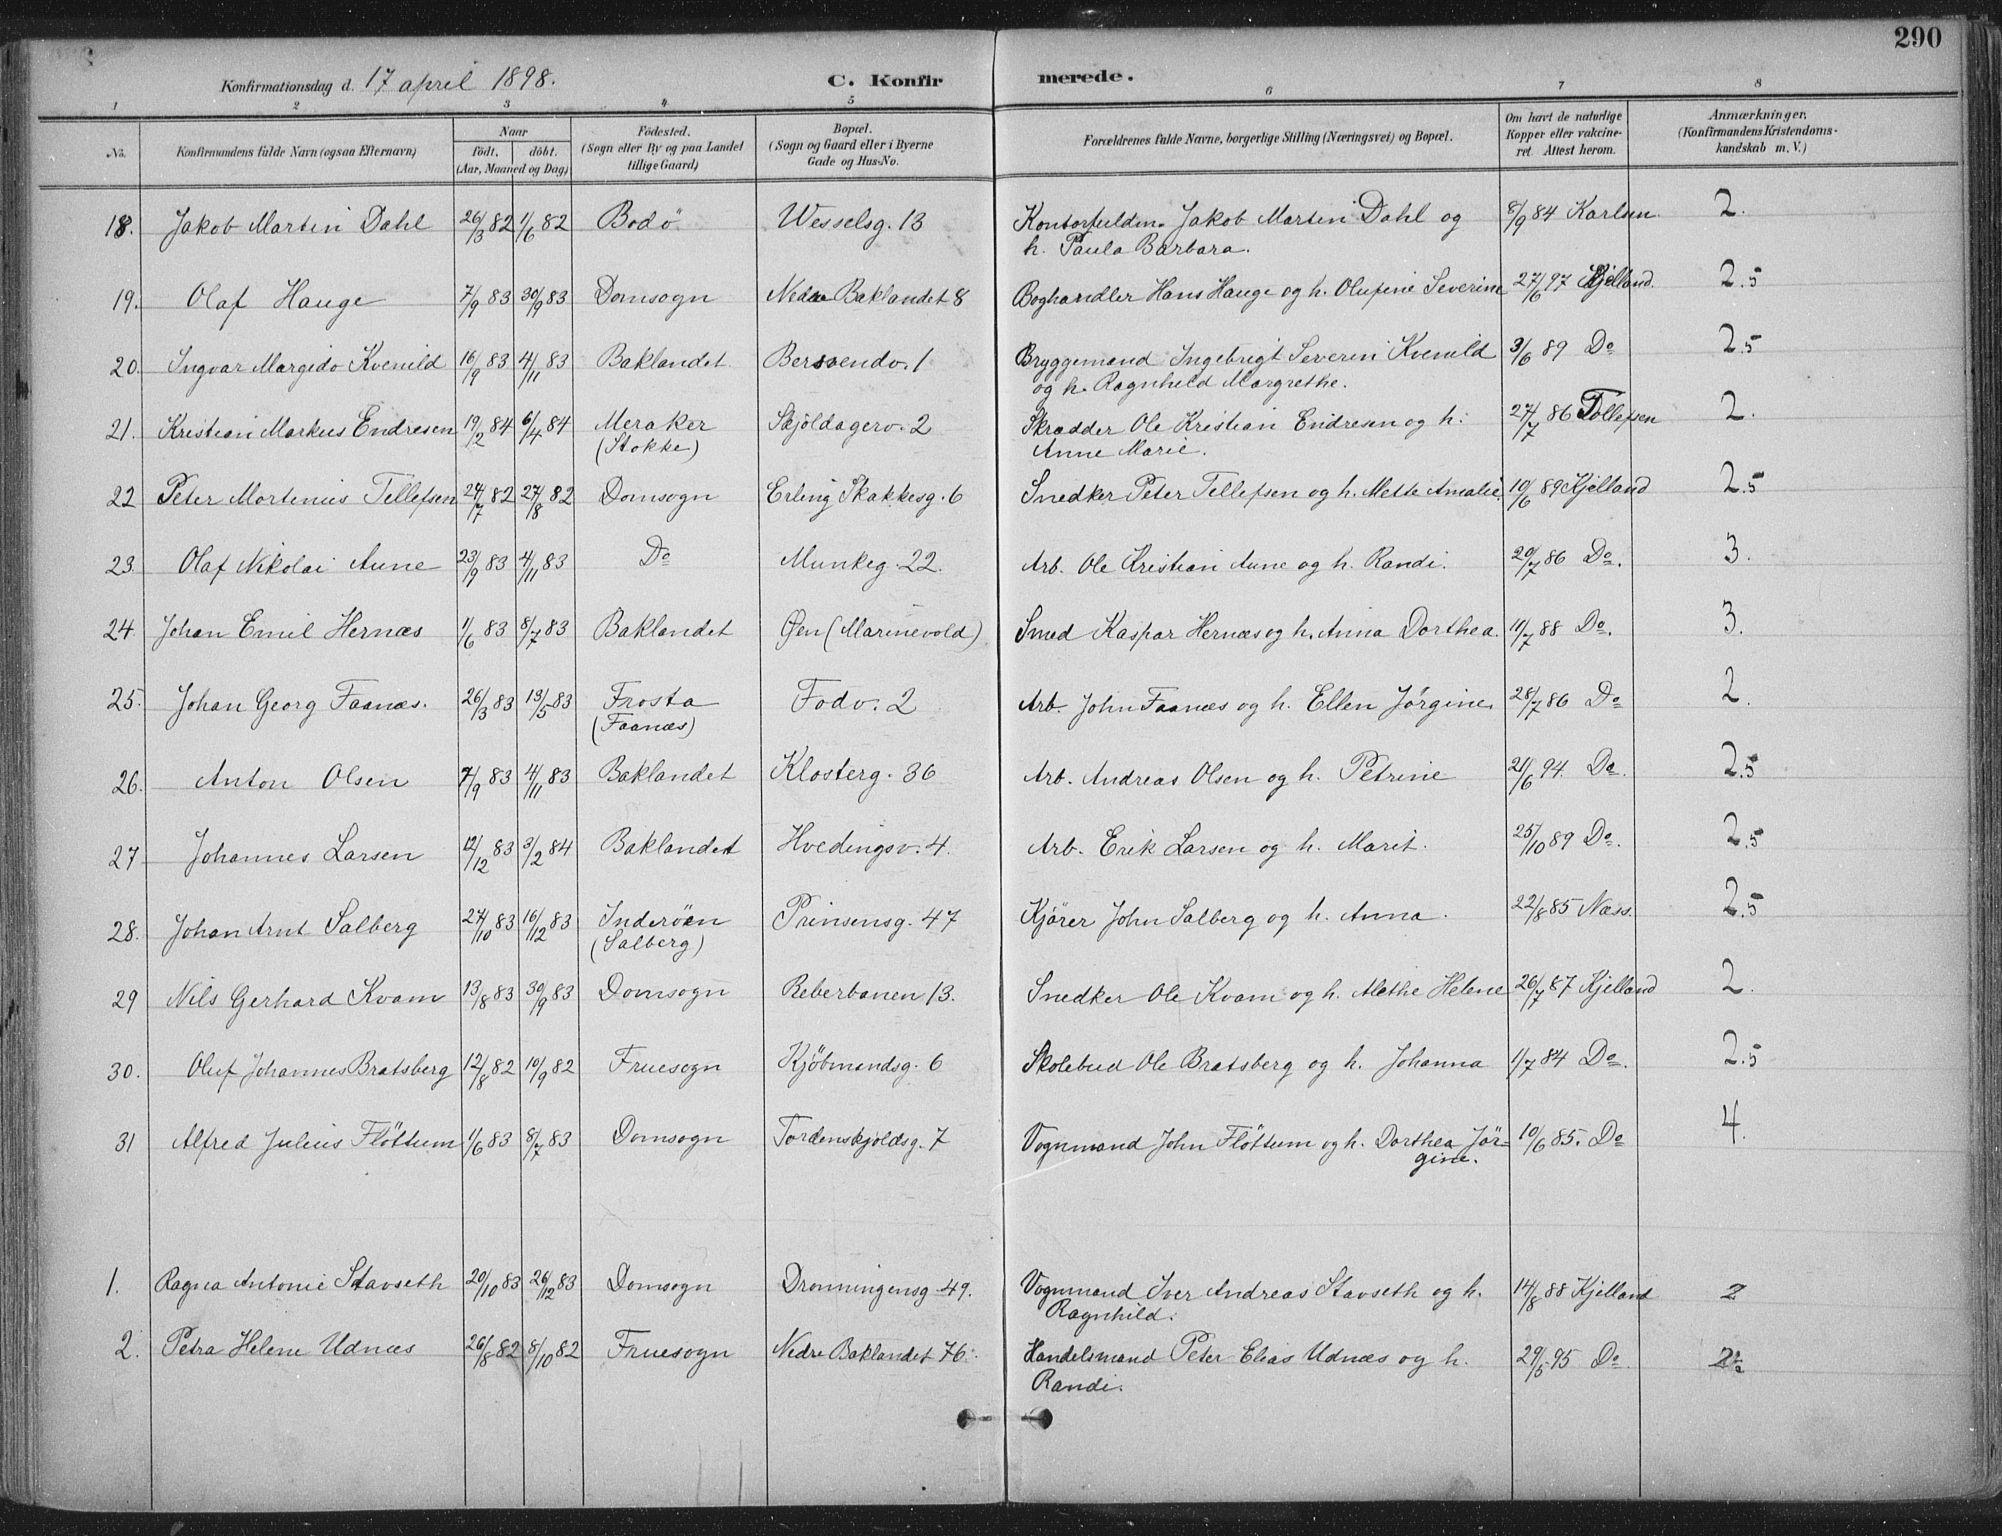 290
Konfirmationsdag d. 17 april 1898. C. Konfirmerede.
1 2 3 4 5 6 7 8
No. Konfirmandens fulde Navn (ogsaa Efternavn) Naar født, døbt. (Aar, Maaned og Dag) Fødested. (Sogn eller By og paa Landet tillige Gaard) Bopæl. (Sogn og Gaard eller i Byerne Gade og Hus-No. Forældrenes fulde Navne, borgerlige Stilling (Næringsvei) og Bopæl. Om havt de naturlige Kopper eller vakcineret. Attest herom. Anmærkninger. (Konfirmandens Kristendomskundskab m. V.)
18. Jakob Martin Dahl 26/3 82 1/6 82 Bodö Wesselsg. 13 Jakob Martin Dahl og 8/9 84 Karlsen. 2.
h. Paula Barbara.
19. Olaf Hauge 7/9 83 30/9 83 Domsogn Nedre Baklandet 8 Boghandler Hans Hauge og h. Olufine Severine 27/6 97 Kjelland. 2.5
20. Ingvar Margido Kvenild 16/9 83 4/11 83 Baklandet Bersvendv. 1 Bryggemand Ingebrigt Severin Kvenild 3/6 89 Do 2.5
og h. Ragnhild Margrethe.
21. Kristian Markus Endresen 19/2 84 6/4 84 Meraker Skjöldagerv. 2 Skrædder Ole Kristian Endresen og h. 27/7 86 Tollefsen 2.
(Stokke) Anne Marie.
22 Peter Mortenius Tellefsen 24/7 82 27/8 82 Domsogn Erling Skakkesg. 6 Snedker Peter Tellefsen og h. Mette Amalie. 10/6 89 Kjelland 2.5
23. Olaf Nikolai Aune 23/9 83 4/11 83 Do Munkeg. 22. Arb. Ole Kristian Aune og h. Randi. 20/7 86 Do. 3.
24. Johan Emil Hernæs 1/6 83 8/7 83 Baklandet Øen (Marinevold) Smed Kaspar Hernæs og h. Anna Dorthea. 11/7 88 Do. 3.
25. Johan Georg Faanæs. 26/3 83 13/5 83 Frosta Fodv. 2 Arb. John Faanæs og h. Ellen Jørgine. 28/7 86 Do 2.
(Faanæs)
26. Anton Olsen 7/9 83 4/11 83 Baklandet Klosterg. 36 Arb. Andreas Olsen og h. Petrine 21/6 94. Do. 2.5
27 Johannes Larsen 12/12 83 3/2 84 Baklandet Hvedingsv. 4. Arb. Erik Larsen og h. Marit. 25/10 89 Do. 2.5
28. Johan Arnt Salberg 27/10 83 16/12 83 Inderöen Prinsensg. 47 Kjörer John Salberg og h. Anna. 22/8 85 Næss. 2.5
(Salberg)
29 Nils Gerhard Kvam 13/8 83 30/9 83 Domsogn Reberbanen 13. Snedker Ole Kvam og h. Methe Helene 26/7 87 Kjelland 2.
30. Oluf Johannes Bratsberg 12/8 82 10/9 82 Fruesogn Kjöbmandsg. 6 Skolebud Ole Bratsberg og h. Johanna 1/7 84 Do. 2.5
31 Alfred Julius Flöttum 1/6 83 8/7 83 Domsogn Tordenskjoldsg. 7 Vognmand John Flöttum og h. Dorthea Jör- 10/6 85. Do 4.
gine.
1. Ragna Antonie Stavseth 20/10 83 26/12 83 Domsogn Dronningensg. 49. Vognmand Iver Andreas Stavseth og h. 14/8 88 Kjelland 2
Ragnhild.
2. Petra Helene Udnæs 26/8 82 8/10 82 Fruesogn Nedre Baklandet 76. Handelsmand Peter Elias Udnæs og h. 29/5 95 Do
Randi.